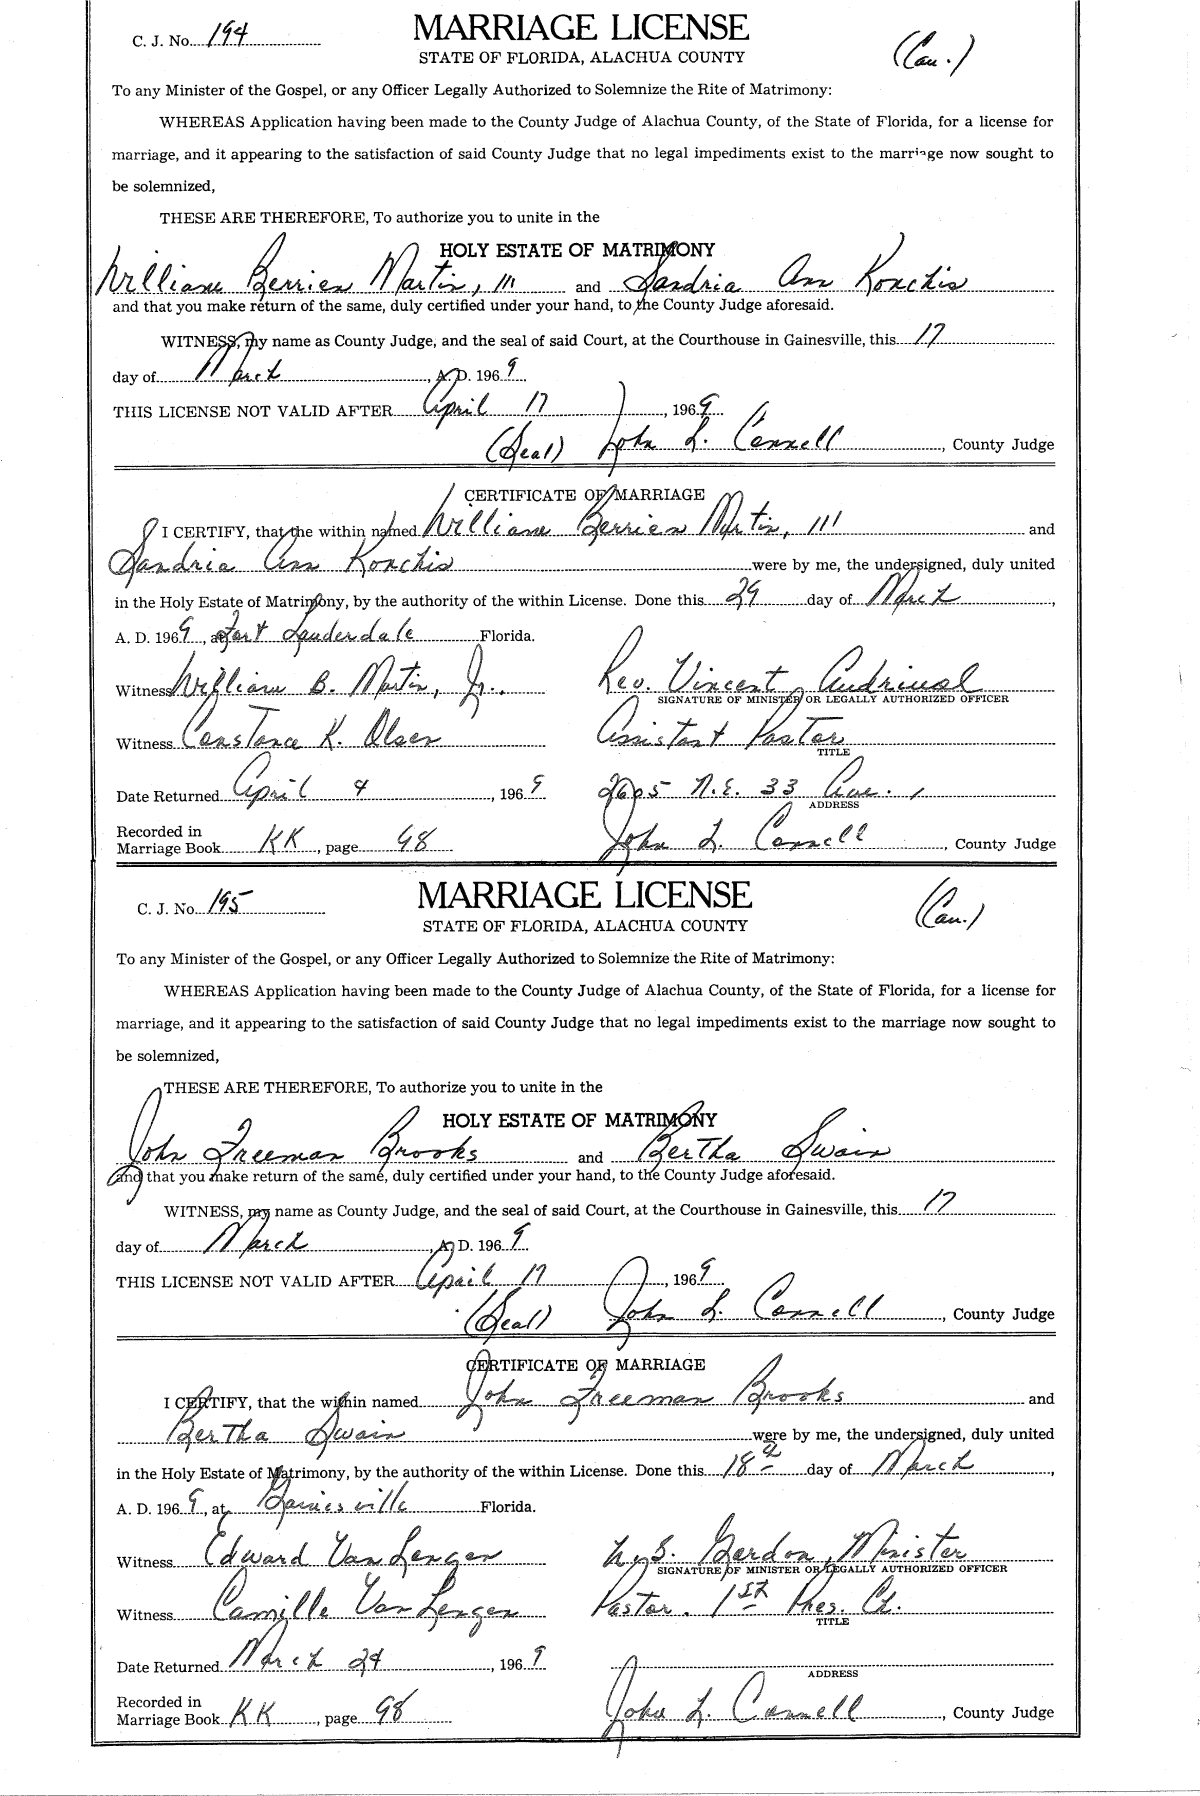 C. J. No. 194
MARRIAGE LICENSE
STATE OF FLORIDA, ALACHUA COUNTY
(Cau.)
To any Minister of the Gospel, or any Officer Legally Authorized to Solemnize the Rite of Matrimony:
WHEREAS Application having been made to the County Judge of Alachua County, of the State of Florida, for a license for
marriage, and it appearing to the satisfaction of said County Judge that no legal impediments exist to the marriage now sought to
be solemnized,
THESE ARE THEREFORE, To authorize you to unite in the
HOLY ESTATE OF MATRIMONY
William Berrien Martin, III and Sandria Ann Konchis
and that you make return of the same, duly certified under your hand, to the County Judge aforesaid.
WITNESS, my name as County Judge, and the seal of said Court, at the Courthouse in Gainesville, this 17
day of March, A. D. 1969
THIS LICENSE NOT VALID AFTER April 17, 1969
(Seal) John L. Connell, County Judge
CERTIFICATE OF MARRIAGE
I CERTIFY, that the within named William Berrien Martin, III and
Sandria Ann Konchis were by me, the undersigned, duly united
in the Holy Estate of Matrimony, by the authority of the within License. Done this 29 day of March,
A. D. 1969, at Fort Lauderdale Florida.
Witness William B. Martin, Jr. Rev. Vincent
SIGNATURE OF MINISTER OR LEGALLY AUTHORIZED OFFICER
Witness Constance K. Olsen Assistant Pastor
TITLE
Date Returned April 4, 1969 2605 N.E. 33 Ave.,
ADDRESS
Recorded in
Marriage Book KK, page 98 John L. Connell, County Judge
C. J. No. 195
MARRIAGE LICENSE
STATE OF FLORIDA, ALACHUA COUNTY
(Cau.)
To any Minister of the Gospel, or any Officer Legally Authorized to Solemnize the Rite of Matrimony:
WHEREAS Application having been made to the County Judge of Alachua County, of the State of Florida, for a license for
marriage, and it appearing to the satisfaction of said County Judge that no legal impediments exist to the marriage now sought to
be solemnized,
THESE ARE THEREFORE, To authorize you to unite in the
HOLY ESTATE OF MATRIMONY
John Freeman Brooks and Bertha Swain
and that you make return of the same, duly certified under your hand, to the County Judge aforesaid.
WITNESS, my name as County Judge, and the seal of said Court, at the Courthouse in Gainesville, this 17
day of March, A. D. 1969
THIS LICENSE NOT VALID AFTER April 17, 1969
(Seal) John L. Connell, County Judge
CERTIFICATE OF MARRIAGE
I CERTIFY, that the within named John Freeman Brooks and
Bertha Swain were by me, the undersigned, duly united
in the Holy Estate of Matrimony, by the authority of the within License. Done this 18th day of March,
A. D. 1969, at Gainesville Florida.
Witness Edward Van Lengen U. S. Gordon, Minister
SIGNATURE OF MINISTER OR LEGALLY AUTHORIZED OFFICER
Witness Camille Van Lengen Pastor. 1st Pres. Ch.
TITLE
Date Returned March 24, 1969
ADDRESS
Recorded in
Marriage Book KK, page 98 John L. Connell, County Judge